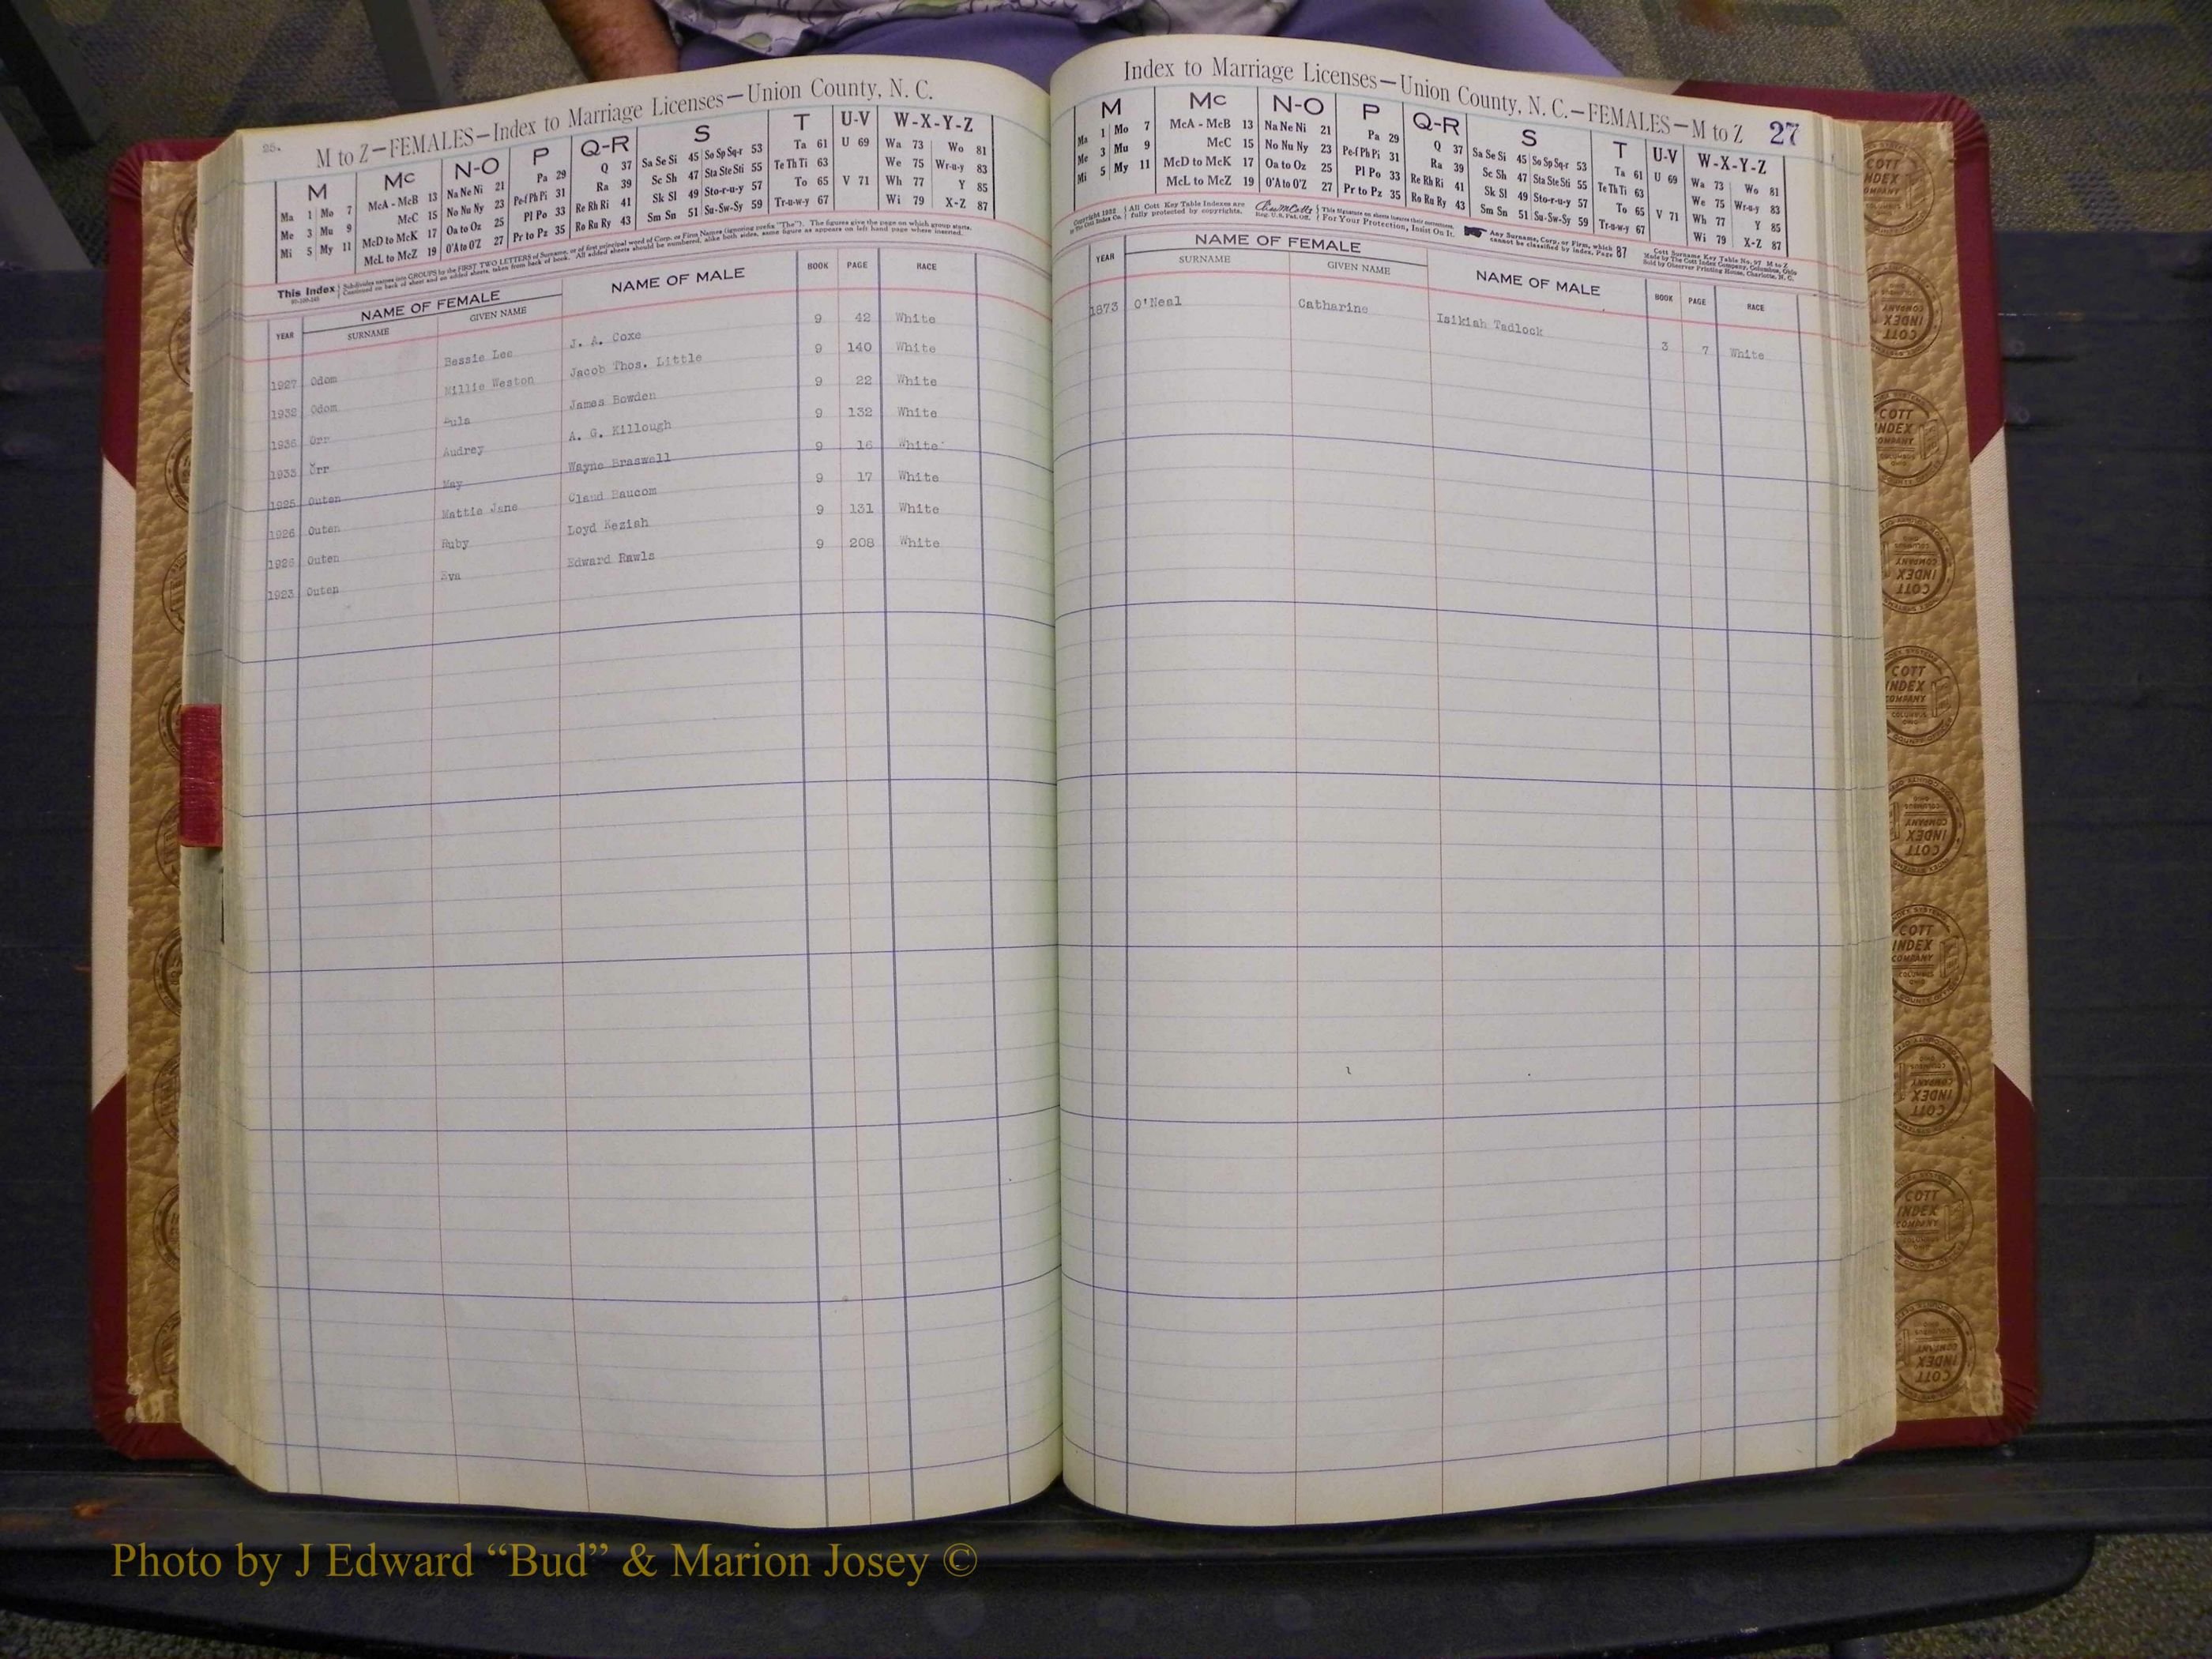 25.
M to Z—FEMALES—Index to Marriage Licenses—Union County, N. C.
M Mc N-O P Q-R S T U-V W-X-Y-Z
Ma 1 Mo 7 McA - McB 13 Na Ne Ni 21 Pa 29 Q 37 Sa Se Si 45 So Sp Sq-r 53 Ta 61 U 69 Wa 73 Wo 81
Me 3 Mu 9 McC 15 No Nu Ny 23 Pe-f Ph Pi 31 Ra 39 Sc Sh 47 Sta Ste Sti 55 Te Th Ti 63 We 75 Wr-u-y 83
Mi 5 My 11 McD to McK 17 Oa to Oz 25 Pl Po 33 Re Rh Ri 41 Sk Sl 49 Sto-r-u-y 57 To 65 V 71 Wh 77 Y 85
McL to McZ 19 O'A to O'Z 27 Pr to Pz 35 Ro Ru Ry 43 Sm Sn 51 Su-Sw-Sy 59 Tr-u-w-y 67 Wi 79 X-Z 87
This Index Subdivides names into GROUPS by the FIRST TWO LETTERS of Surname, or of first principal word of Corp. or Firm Names (ignoring prefix "The"). The figures give the page on which group starts.
Continued on back of sheet and on added sheets, taken from back of book. All added sheets should be numbered, alike both sides, same figure as appears on left hand page where inserted.
YEAR NAME OF FEMALE NAME OF MALE BOOK PAGE RACE
SURNAME GIVEN NAME
1927 Odom Bessie Lee J. A. Coxe 9 42 White
1932 Odom Millie Weston Jacob Thos. Little 9 140 White
1936 Orr Eula James Bowden 9 22 White
1933 Orr Audrey A. G. Killough 9 132 White
1925 Outen May Wayne Braswell 9 16 White
1926 Outen Mattie Jane Claud Baucom 9 17 White
1926 Outen Ruby Loyd Keziah 9 131 White
1923 Outen Eva Edward Rawls 9 208 White
Index to Marriage Licenses—Union County, N. C.—FEMALES—M to Z 27
M Mc N-O P Q-R S T U-V W-X-Y-Z
Ma 1 Mo 7 McA - McB 13 Na Ne Ni 21 Pa 29 Q 37 Sa Se Si 45 So Sp Sq-r 53 Ta 61 U 69 Wa 73 Wo 81
Me 3 Mu 9 McC 15 No Nu Ny 23 Pe-f Ph Pi 31 Ra 39 Sc Sh 47 Sta Ste Sti 55 Te Th Ti 63 We 75 Wr-u-y 83
Mi 5 My 11 McD to McK 17 Oa to Oz 25 Pl Po 33 Re Rh Ri 41 Sk Sl 49 Sto-r-u-y 57 To 65 V 71 Wh 77 Y 85
McL to McZ 19 O'A to O'Z 27 Pr to Pz 35 Ro Ru Ry 43 Sm Sn 51 Su-Sw-Sy 59 Tr-u-w-y 67 Wi 79 X-Z 87
Copyright 1932 by The Cott Index Co. All Cott Key Table Indexes are fully protected by copyrights. Reg. U.S. Pat. Off. This signature on sheets insures their genuineness. For Your Protection, Insist On It.
Any Surname, Corp. or Firm, which cannot be classified by index, Page 87
Cott Surname Key Table No. 97 M to Z
Made by The Cott Index Company, Columbus, Ohio
Sold by Observer Printing House, Charlotte, N. C.
YEAR NAME OF FEMALE NAME OF MALE BOOK PAGE RACE
SURNAME GIVEN NAME
1873 O'Neal Catharine Isikiah Tadlock 3 7 White
COTT INDEX COMPANY
COLUMBUS OHIO
Photo by J Edward “Bud” & Marion Josey ©